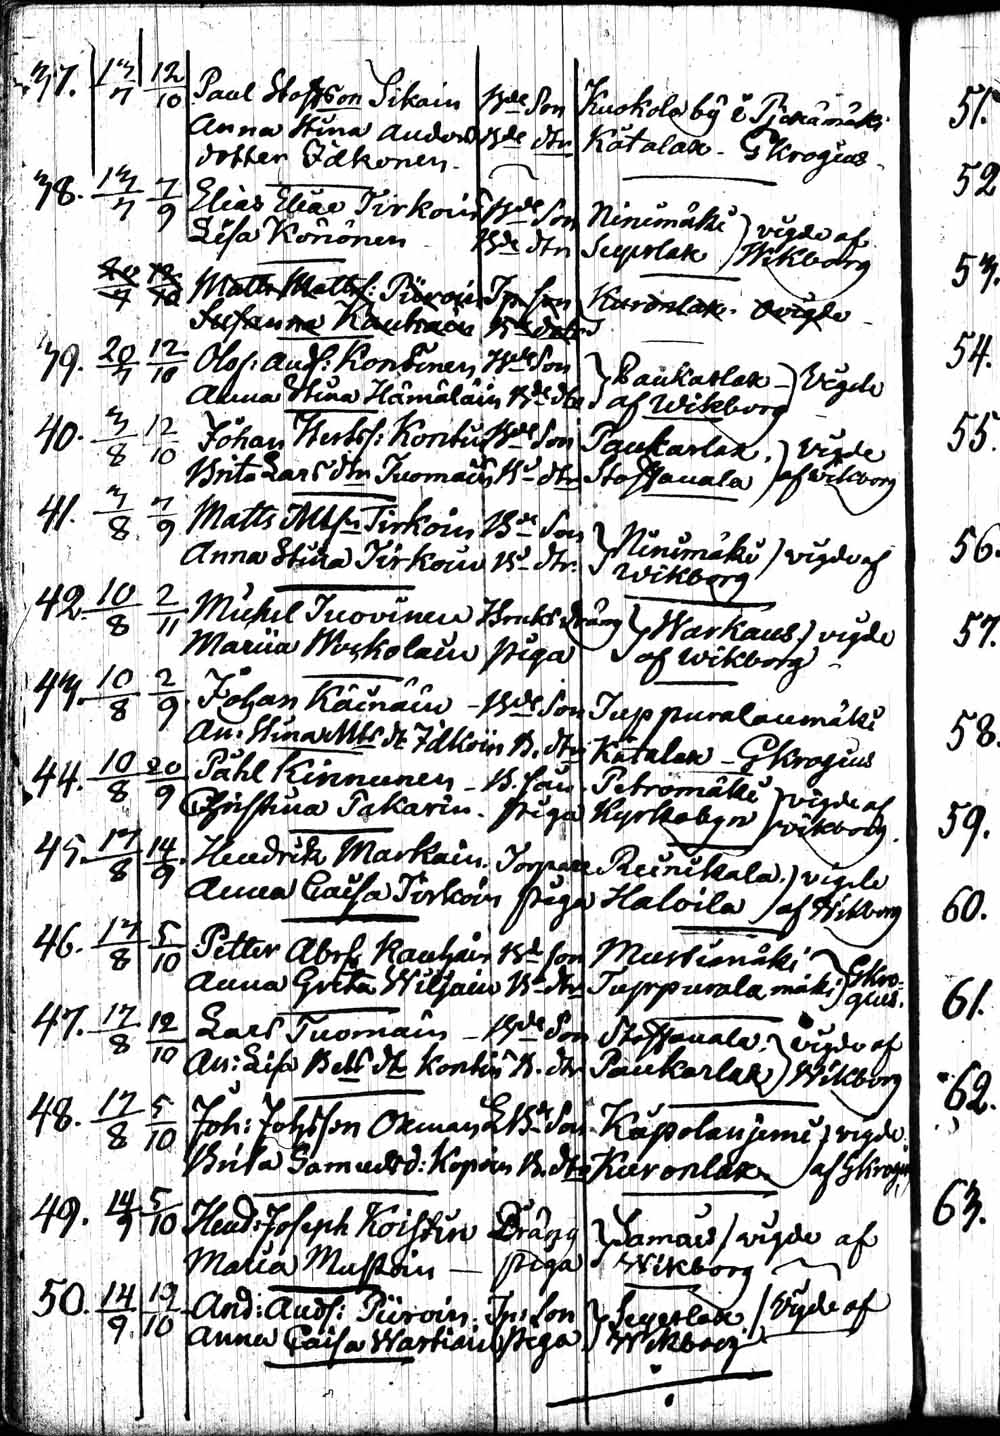 37. 13/7 12/10 Paul Staffson Sikain Bde Son Kuokola by i Pjenämäki
Anna Stina Anders Bde dtr Kätalax - Gkrogius
dotter Idkonen
38. 13/7 7/9 Elias Eliae Tirkoin Bde Son Ninimäki vigde af
Lisa Könönen Bde dtr Seperlax Wikborg
20/7 12/10 Matts Matts: Piiroin Jp. Son Kuronlax. ovigde
Susanna Kauhain
39. 20/7 12/10 Olof: Ands: Kontinen Bde Son Paukarlax - Vigde
Anna Stina Hämäläin Bde dtr af Wikborg
40. 3/8 12/10 Johan Kontin Bde Son Paukarlax, vigde
Brita Lars dtr Tuomain B dtr Staffauala af wikborg
41. 3/8 7/9 Matts Mtss: Tirkoin Bde Son Ninimäki vigde af
Anna Stina Tirkoin B dtr. Wikborg
42. 10/8 2/11 Michel Tuovinen Bruks dräng Warkaus vigde
Maria Woskolain piga af wikborg
43. 10/8 2/9 Johan Käinäin - Bde Son Tuppuralanmäki
An: Stina Mts dr Idkoin B. dtr Kätalax - Gkrogius
44. 10/8 20/9 Påhl Kinnunen - B. son Petromäki vigde af
Christina Pakarin. piga Kyrkobyn wikborg.
45. 17/8 14/9 Hendrik Markain. Torpare Reinikala. vigde
Anna Caisa Tirkoin piga Haloila af Wikborg
46. 17/8 5/10 Petter Abrs: Kauhain Bd son Mustimäki Gkro-
Anna Greta Wiljain B dtr Tuppurala mäki gius.
47. 17/8 12/10 Lars Tuomain - Bde Son Staffauala. vigde af
An: Lisa dtr Kontin B. dtr Paukarlax Wikborg
48. 17/8 5/10 Joh: Johsson Oxman Bde Son Käpolanjemi vigde
Brita Samuelsd: Kopoin B. dtr Kuronlax. af Gkrogius
49. 14/9 5/10 Hend: Joseph Koistin Dräng Jamais vigde af
Maria Mustoin - piga Wikborg
50. 14/9 12/10 And: Ands: Piiroin. Jp: Son Seperlax Vigde af
Anna Caisa Wartiain piga Wikborg
51.
52
53.
54.
55.
56.
57.
58.
59.
60.
61.
62.
63.